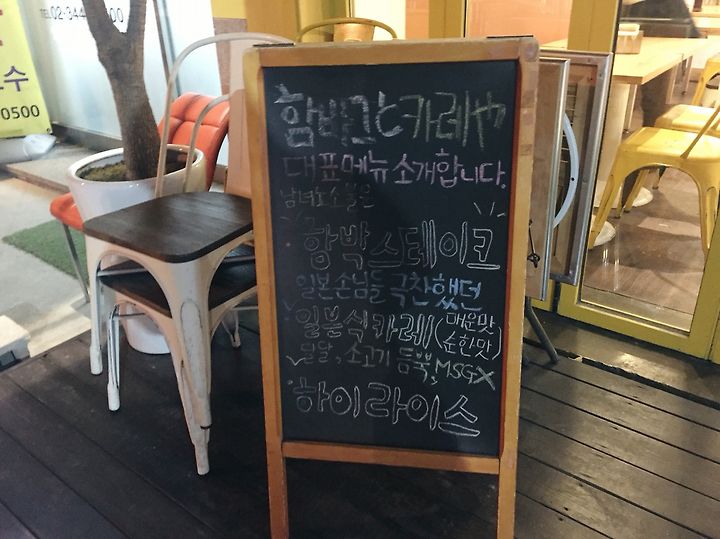 TEL 02-344
수
0500
함박그と카레や
대표메뉴 소개합니다.
남녀노소좋은
함박스테이크
일본손님들 극찬했던
일본식카레 (매운맛
순한맛)
달달, 소고기 듬뿍, MSG X
하이라이스